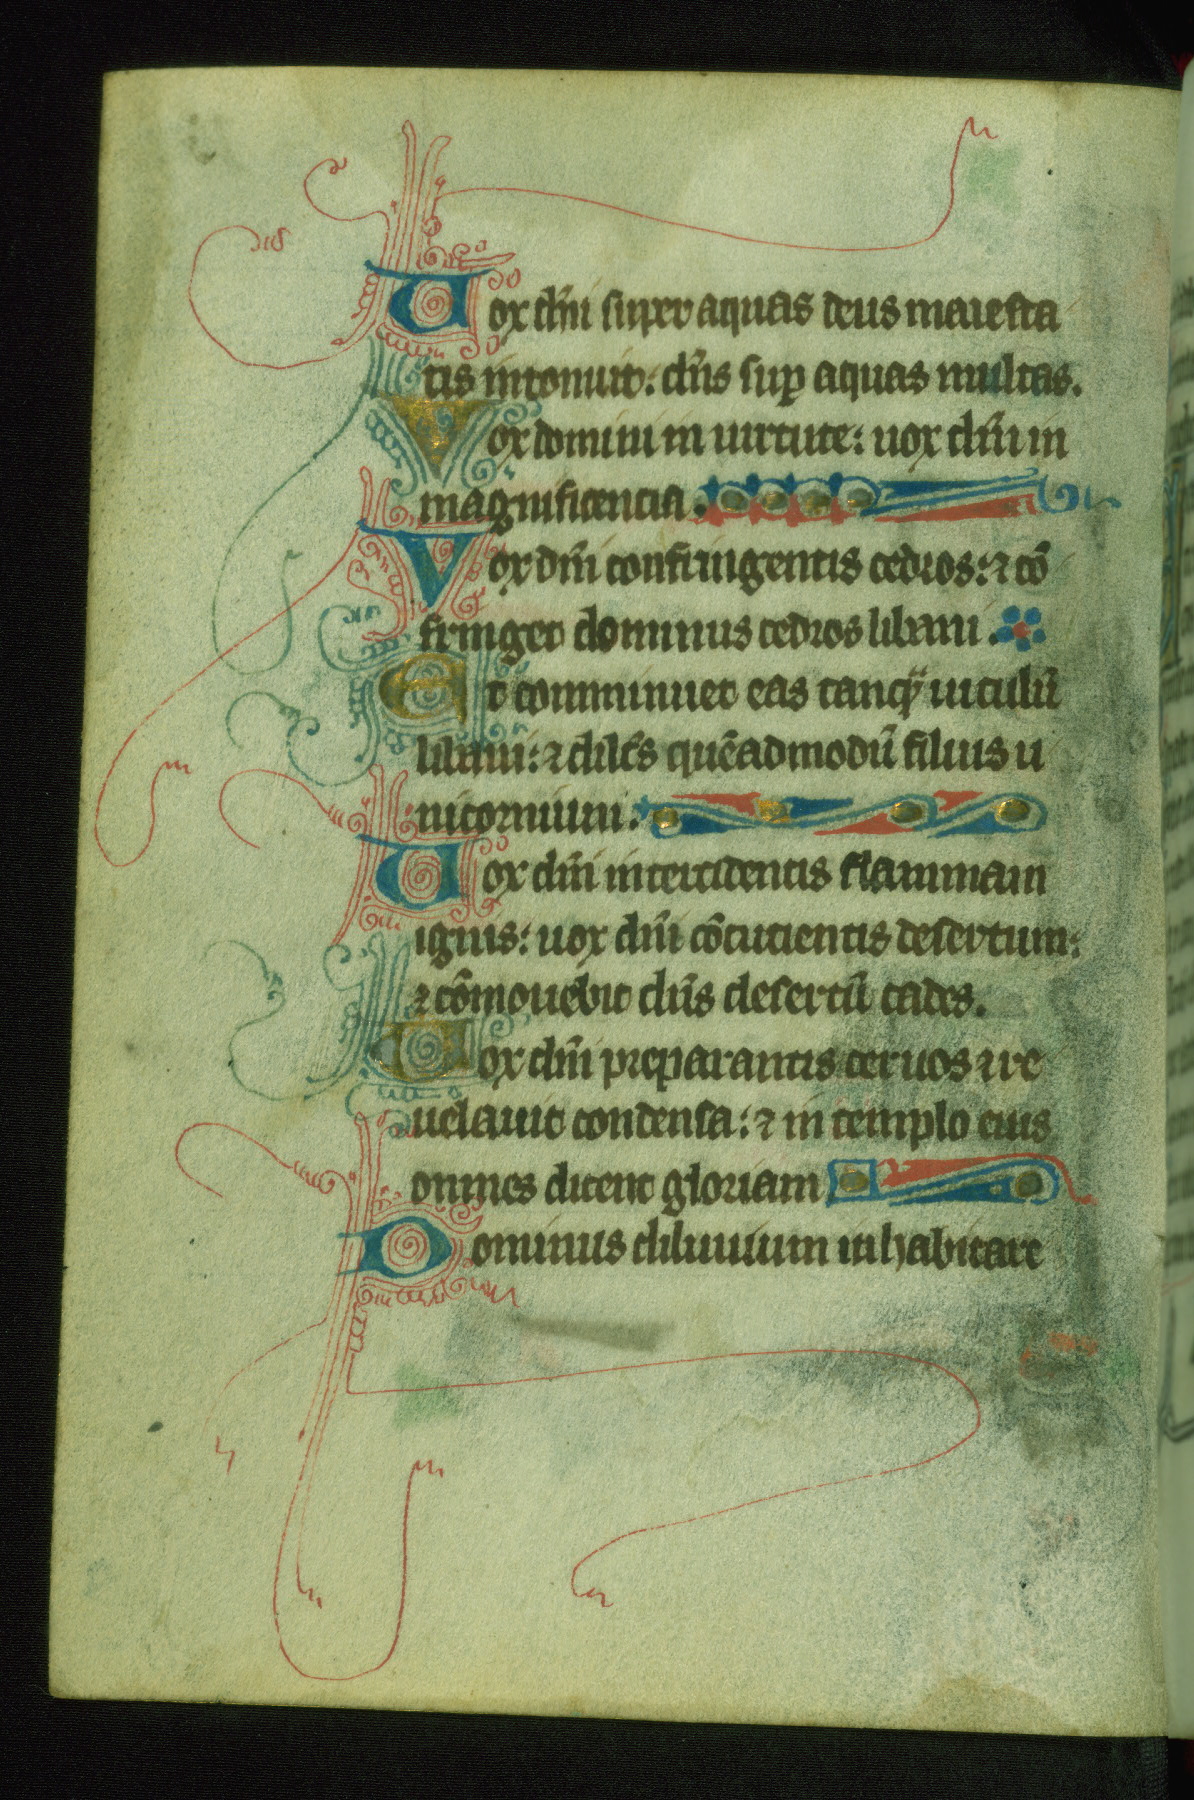 Uox dn̄i super aquas deus maiesta
tis intonuit: dn̄s suꝑ aquas multas.
Vox domini in uirtute: uox dn̄i in
magnificencia.
Vox dn̄i confringentis cedros: ⁊ cō
fringet dominus cedros libani.
Et comminuet eas tanqͣ uitulū
libani: ⁊ dilc̄s quēadmodū filius u
nicornium.
Uox dn̄i intercidentis flammam
ignis: uox dn̄i cōcutientis desertum:
⁊ cōmouebit dn̄s desertū cades.
Uox dn̄i preparantis ceruos ⁊ re
uelauit condensa: ⁊ in templo eius
omnes dicent gloriam
Dominus diluuium inhabitare